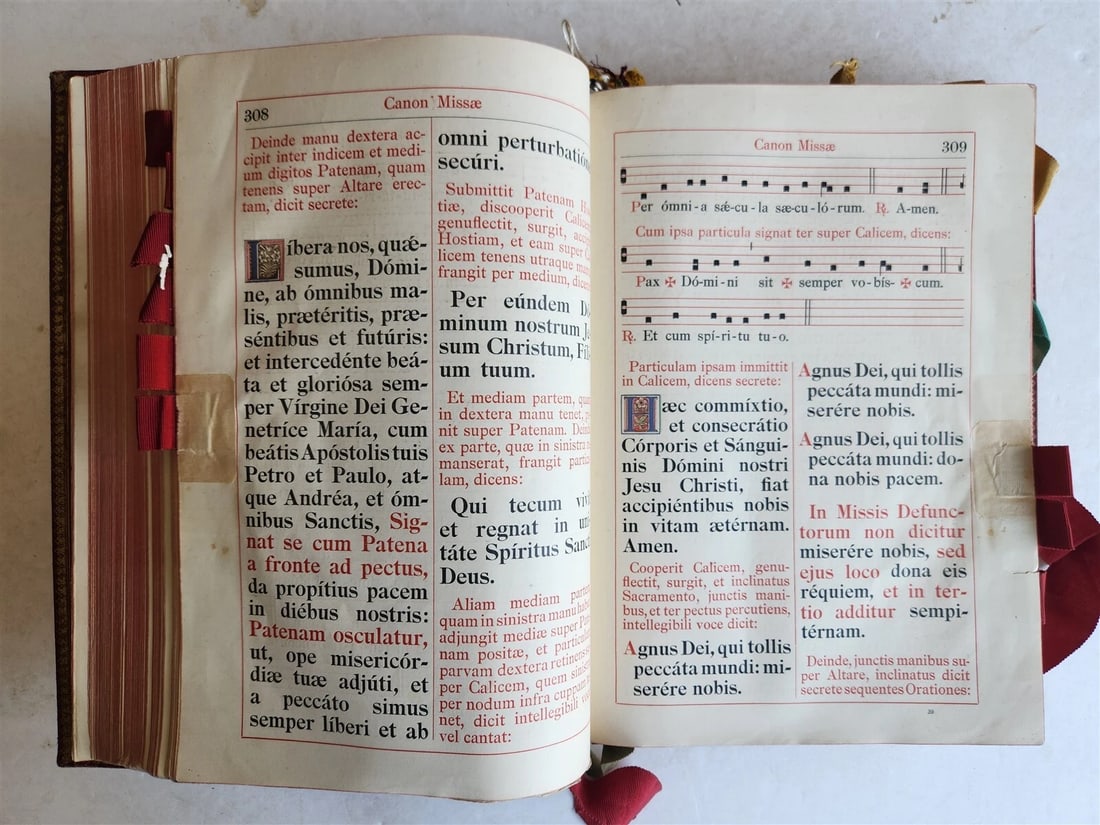 308
Canon Missæ
Deinde manu dextera ac-
cipit inter indicem et medi-
um digitos Patenam, quam
tenens super Altare erec-
tam, dicit secrete:
Líbera nos, quǽ-
sumus, Dómi-
ne, ab ómnibus ma-
lis, prætéritis, præ-
séntibus et futúris:
et intercedénte beá-
ta et gloriósa sem-
per Vírgine Dei Ge-
netríce María, cum
beátis Apóstolis tuis
Petro et Paulo, at-
que Andréa, et óm-
nibus Sanctis, Sig-
nat se cum Patena
a fronte ad pectus,
da propítius pacem
in diébus nostris:
Patenam osculatur,
ut, ope misericór-
diæ tuæ adjúti, et
a peccáto simus
semper líberi et ab
omni perturbatión
secúri.
Submittit Patenam
tiæ, discooperit
genuflectit, surgit,
Hostiam, et eam super
licem tenens utraque
frangit per medium,
Per eúndem
minum nostrum
sum Christum,
um tuum.
Et mediam partem,
in dextera manu tenet,
nit super Patenam.
ex parte, quæ in sinistra
manserat, frangit
lam, dicens:
Qui tecum
et regnat in
táte Spíritus
Deus.
Aliam mediam
quam in sinistra manu
adjungit mediæ super
nam positæ, et
parvam dextera
per Calicem, quem
per nodum infra
net, dicit intellegibili
vel cantat:
Canon Missæ
309
Per ómni-a sǽ-cu-la sæ-cu-ló-rum. ℟. A-men.
Cum ipsa particula signat ter super Calicem, dicens:
Pax ✠ Dó-mi-ni sit ✠ semper vo-bís- ✠ cum.
℟. Et cum spí-ri-tu tu-o.
Particulam ipsam immittit
in Calicem, dicens secrete:
Hæc commíxtio,
et consecrátio
Córporis et Sángui-
nis Dómini nostri
Jesu Christi, fiat
accipiéntibus nobis
in vitam ætérnam.
Amen.
Cooperit Calicem, genu-
flectit, surgit, et inclinatus
Sacramento, junctis mani-
bus, et ter pectus percutiens,
intellegibili voce dicit:
Agnus Dei, qui tollis
peccáta mundi: mi-
serére nobis.
Agnus Dei, qui tollis
peccáta mundi: mi-
serére nobis.
Agnus Dei, qui tollis
peccáta mundi: do-
na nobis pacem.
In Missis Defunc-
torum non dicitur
miserére nobis, sed
ejus loco dona eis
réquiem, et in ter-
tio additur sempi-
térnam.
Deinde, junctis manibus su-
per Altare, inclinatus dicit
secrete sequentes Orationes: